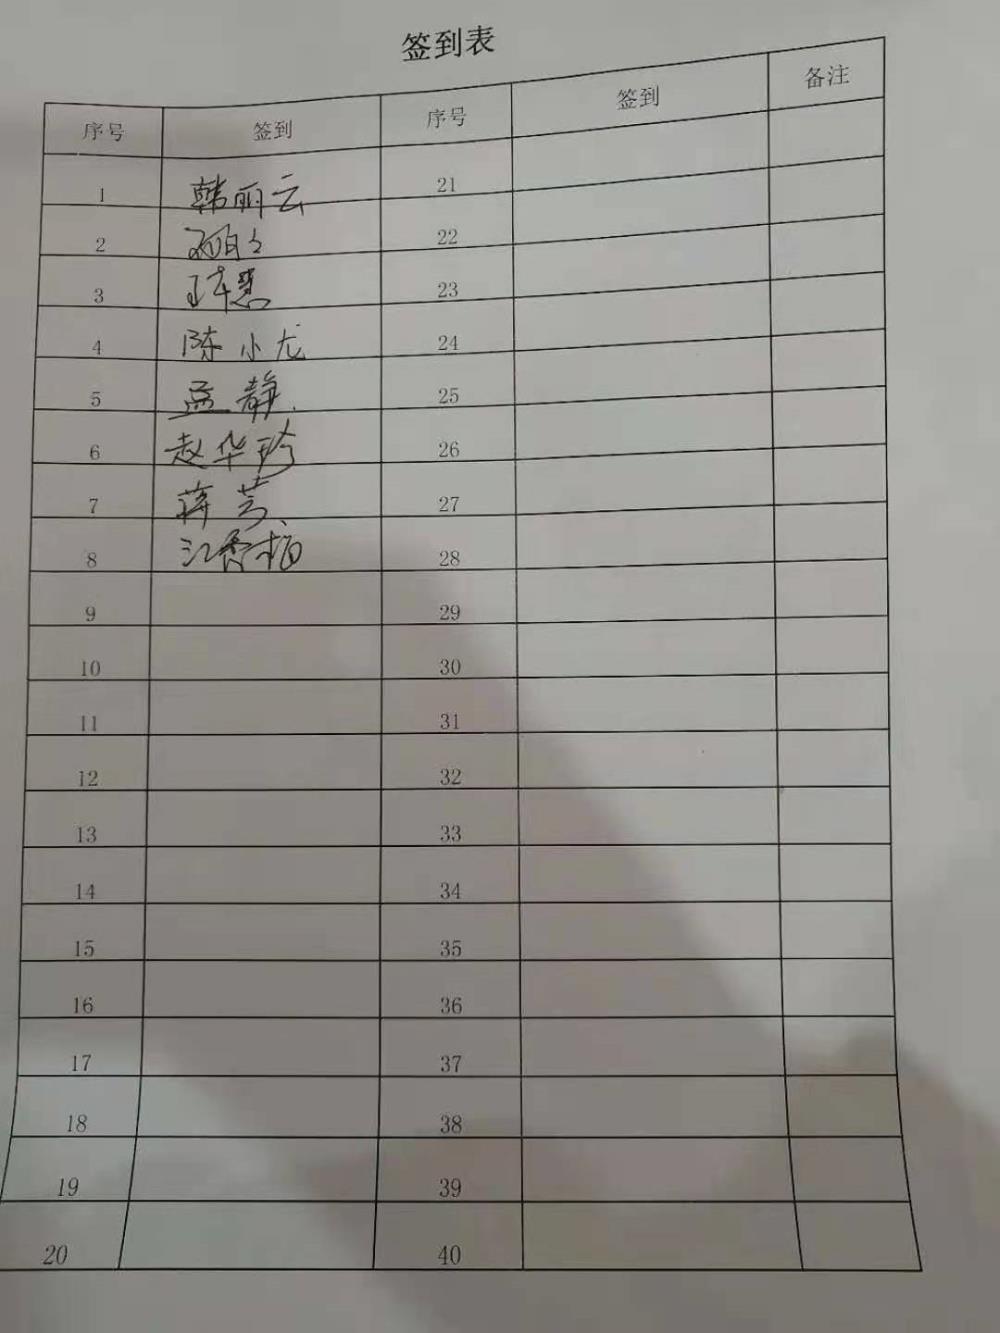 签到表
序号 签到 序号 签到 备注
1 韩丽云 21
2 22
3 23
4 陈小龙 24
5 孟静 25
6 赵华珍 26
7 蒋芸 27
8 28
9 29
10 30
11 31
12 32
13 33
14 34
15 35
16 36
17 37
18 38
19 39
20 40